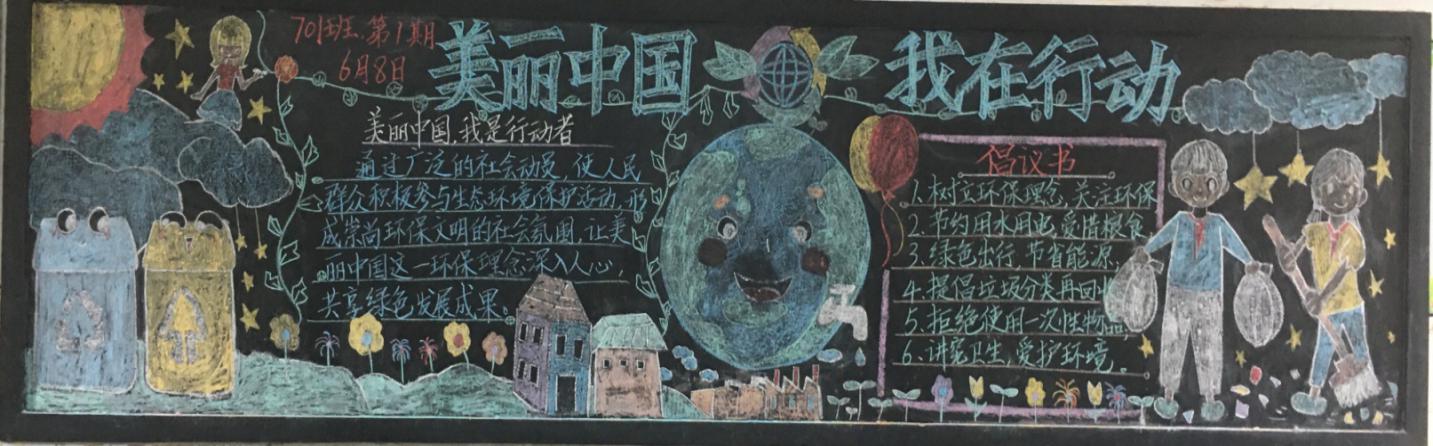 701班.第1期
6月8日
美丽中国
我在行动
美丽中国,我是行动者
通过广泛的社会动员,使人民
群众积极参与生态环境保护活动,形
成崇尚环保文明的社会氛围,让美
丽中国这一环保理念深入人心,
共享绿色发展成果。
倡议书
1.树立环保理念,关注环保
2.节约用水用电,爱惜粮食
3.绿色出行,节省能源.
4.提倡垃圾分类再回收
5.拒绝使用一次性物品,
6.讲究卫生,爱护环境.